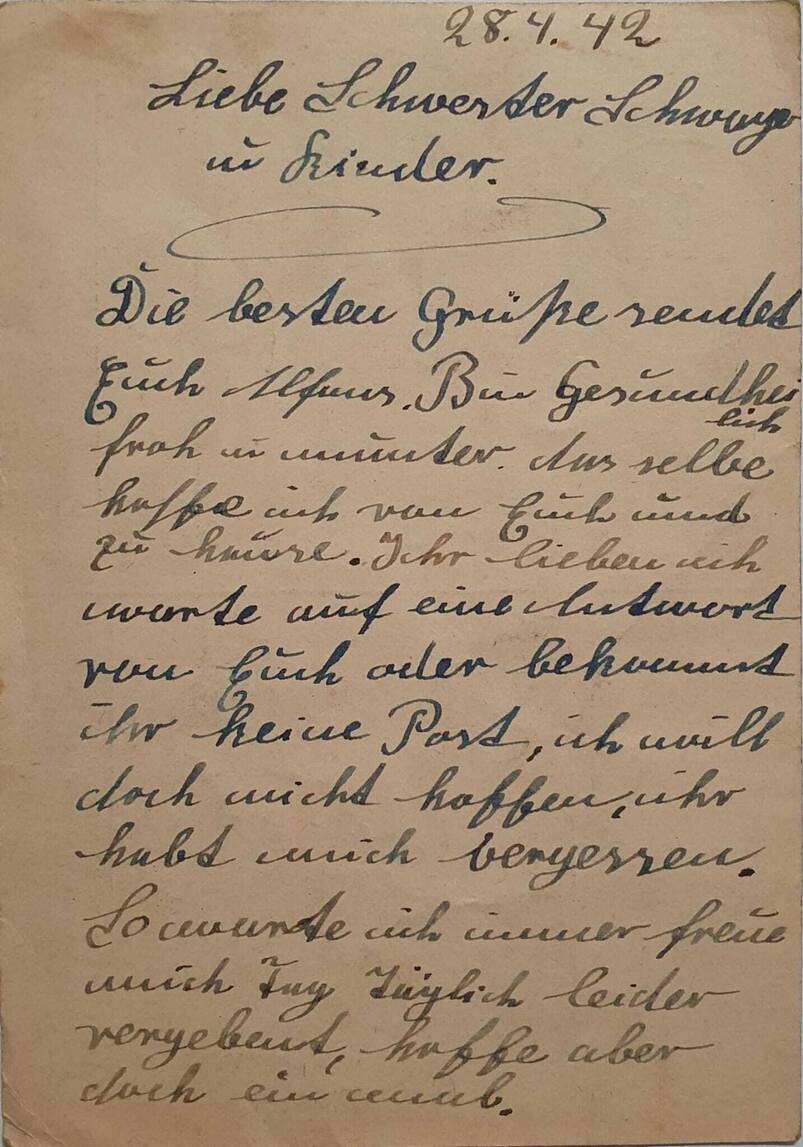 28.4.42
Liebe Schwester Schwager
u Kinder.
Die besten Grüße sendet
Euch Alfons. Bin Gesundhei
lich
froh u munter. Das selbe
hoffe ich von Euch und
zu hause. Ihr lieben ich
warte auf eine Antwort
von Euch oder bekommt
ihr keine Post, ich will
doch nicht hoffen, ihr
habt mich vergessen.
So warte ich immer freue
mich Tag Täglich leider
vergebent, hoffe aber
doch ein mal.